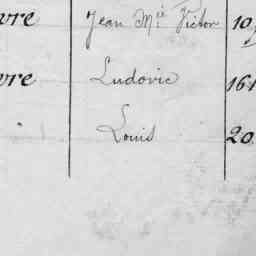 vre Jean M.ie Victor 10
vre Ludovic 161
Louis 20